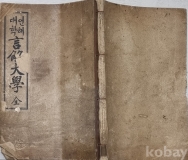 언해
대학
言解大學 全
kobay